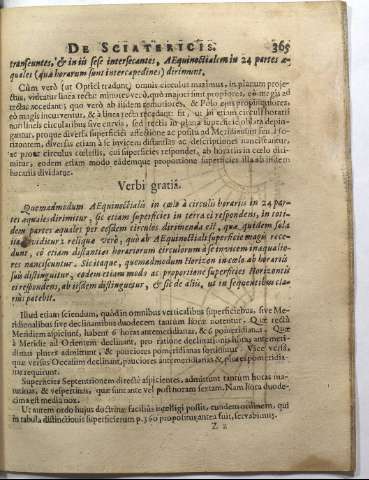 DE SCIATERICIS. 365
transeuntes, & in iis sese intersecantes, AEquinoctialem in 24 partes æ-
quales (quæ horarum sunt intercapedines) dirimunt.
Cùm verò (ut Optici tradunt) omnis circulus maximus, in planum projec-
tus, videatur linea recta: minores verò, quò majori sint propiores, eò magis ad
rectas accedant; quò verò ab iisdem remotiores, & Polo
eò magis incurventur, & à linea recta recedant: fit, ut in etiam circuli horarii
non lineis circularibus sive curvis, sed rectis in plana superficie oblata depin-
gantur, proque diversa superficiei affectione ac positu ad Meridianum seu Ho-
rizontem, diversis etiam à se invicem distantiis ac descriptionibus nanciscantur,
ac prout circulus cœlestis, cui superficies respondet, ab horariis in cœlo diri-
mitur, eodem etiam modo eademque proportione superficies illa ab iisdem
horariis dividatur.
Verbi gratiâ.
Quemadmodum AEquinoctialis in cœlo à circulis horariis in 24 par-
tes æquales dirimitur, sic etiam superficies in terra ei respondens, in toti-
dem partes æquales per eosdem circulos dirimenda est, quæ quidem sola
ita dividitur: reliquæ verò, quò ab AEquinoctialis superficie magis rece-
dunt, eò etiam distantias horariorum circulorum à se invicem inæqualio-
res nanciscuntur. Sic itaque, quemadmodum Horizon in cœlo ab horariis
suis distinguitur, eodem etiam modo ac proportione superficies Horizontis
ei respondens, ab iisdem distinguitur, & sic de aliis, ut in sequentibus cla-
rius patebit.
Illud etiam sciendum, quòd in omnibus verticalibus superficiebus, sive Me-
ridionalibus sive declinantibus duodecem tantùm horæ notentur. Quæ rectà
Meridiem aspiciunt, habent 6 horas antemeridianas, & 6 pomeridianas. Quæ
à Meridie ad Orientem declinant, pro ratione declinationis horas antemeri-
dianas plures admittunt, & pauciores pomeridianas sortiuntur. Vice versâ,
quæ versus Occasum declinant, pauciores antemeridianas & plures pomeridia-
nas requirunt.
Superficies Septentrionem directè aspicientes, admittunt tantum horas ma-
tutinas, & vespertinas, quæ sunt ante vel post horam sextam. Nam hora duode-
cima est media nox.
Ut autem ordo hujus doctrinæ faciliùs intelligi possit, eundem ordinem, qui
in tabula distinctionis superficierum p. 360 propositus antea fuit, servabimus.
Z z